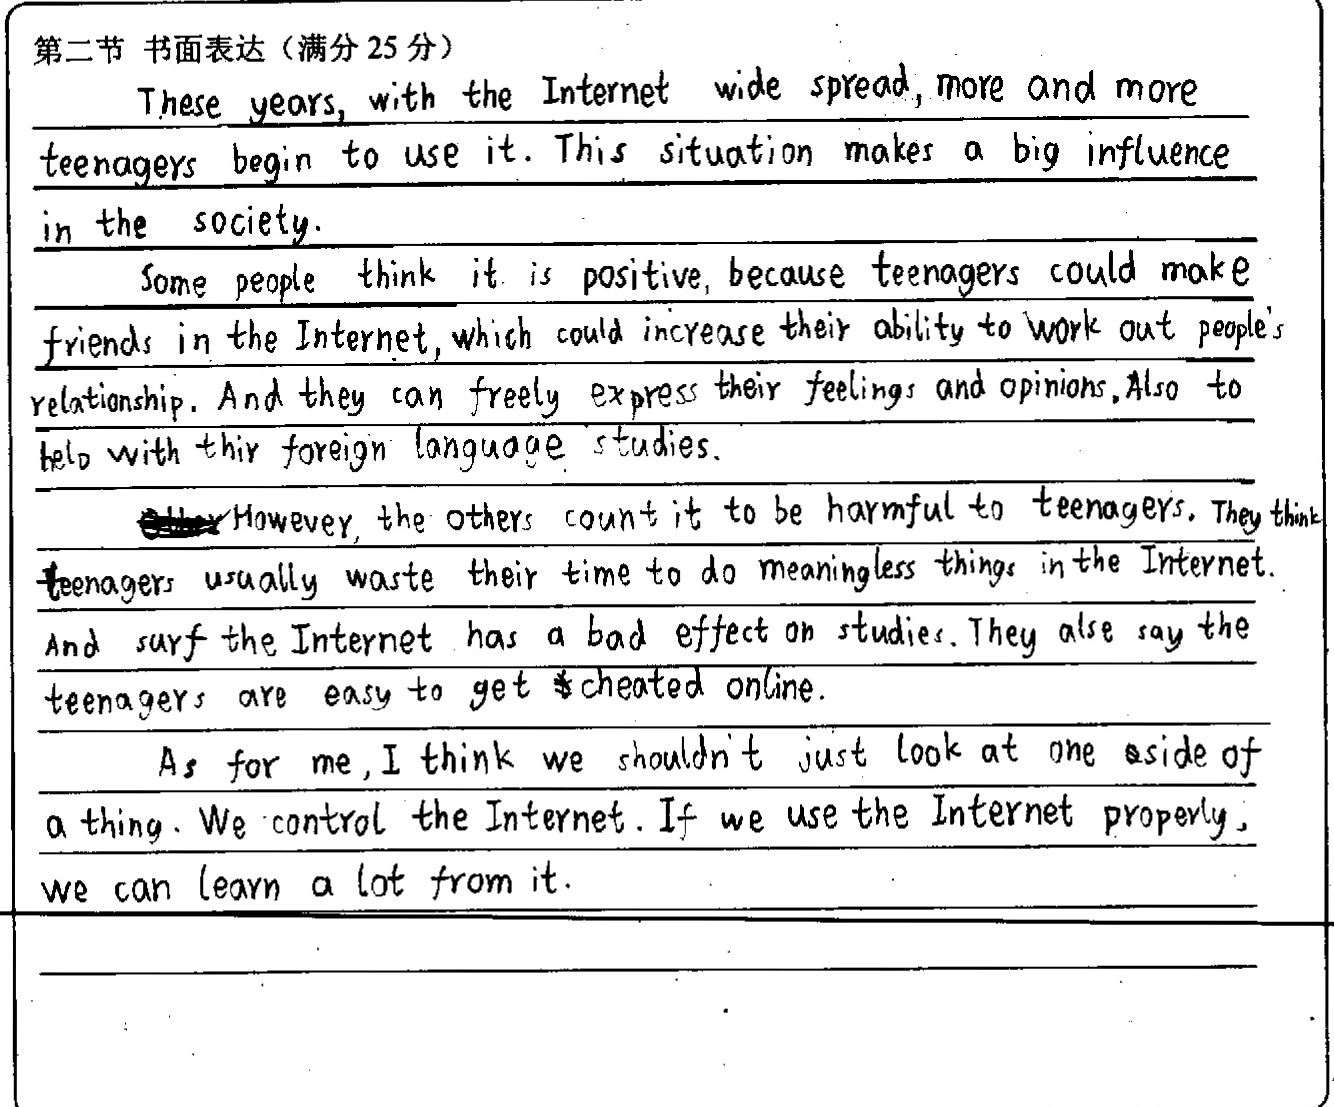 第二节 书面表达（满分 25 分）
These years, with the Internet wide spread, more and more
teenagers begin to use it. This situation makes a big influence
in the society.
Some people think it is positive, because teenagers could make
friends in the Internet, which could increase their ability to work out people's
relationship. And they can freely express their feelings and opinions. Also to
help with thir foreign language studies.
However, the others count it to be harmful to teenagers. They think
teenagers usually waste their time to do meaningless things in the Internet.
And surf the Internet has a bad effect on studies. They alse say the
teenagers are easy to get cheated online.
As for me, I think we shouldn't just look at one side of
a thing. We control the Internet. If we use the Internet properly,
we can learn a lot from it.